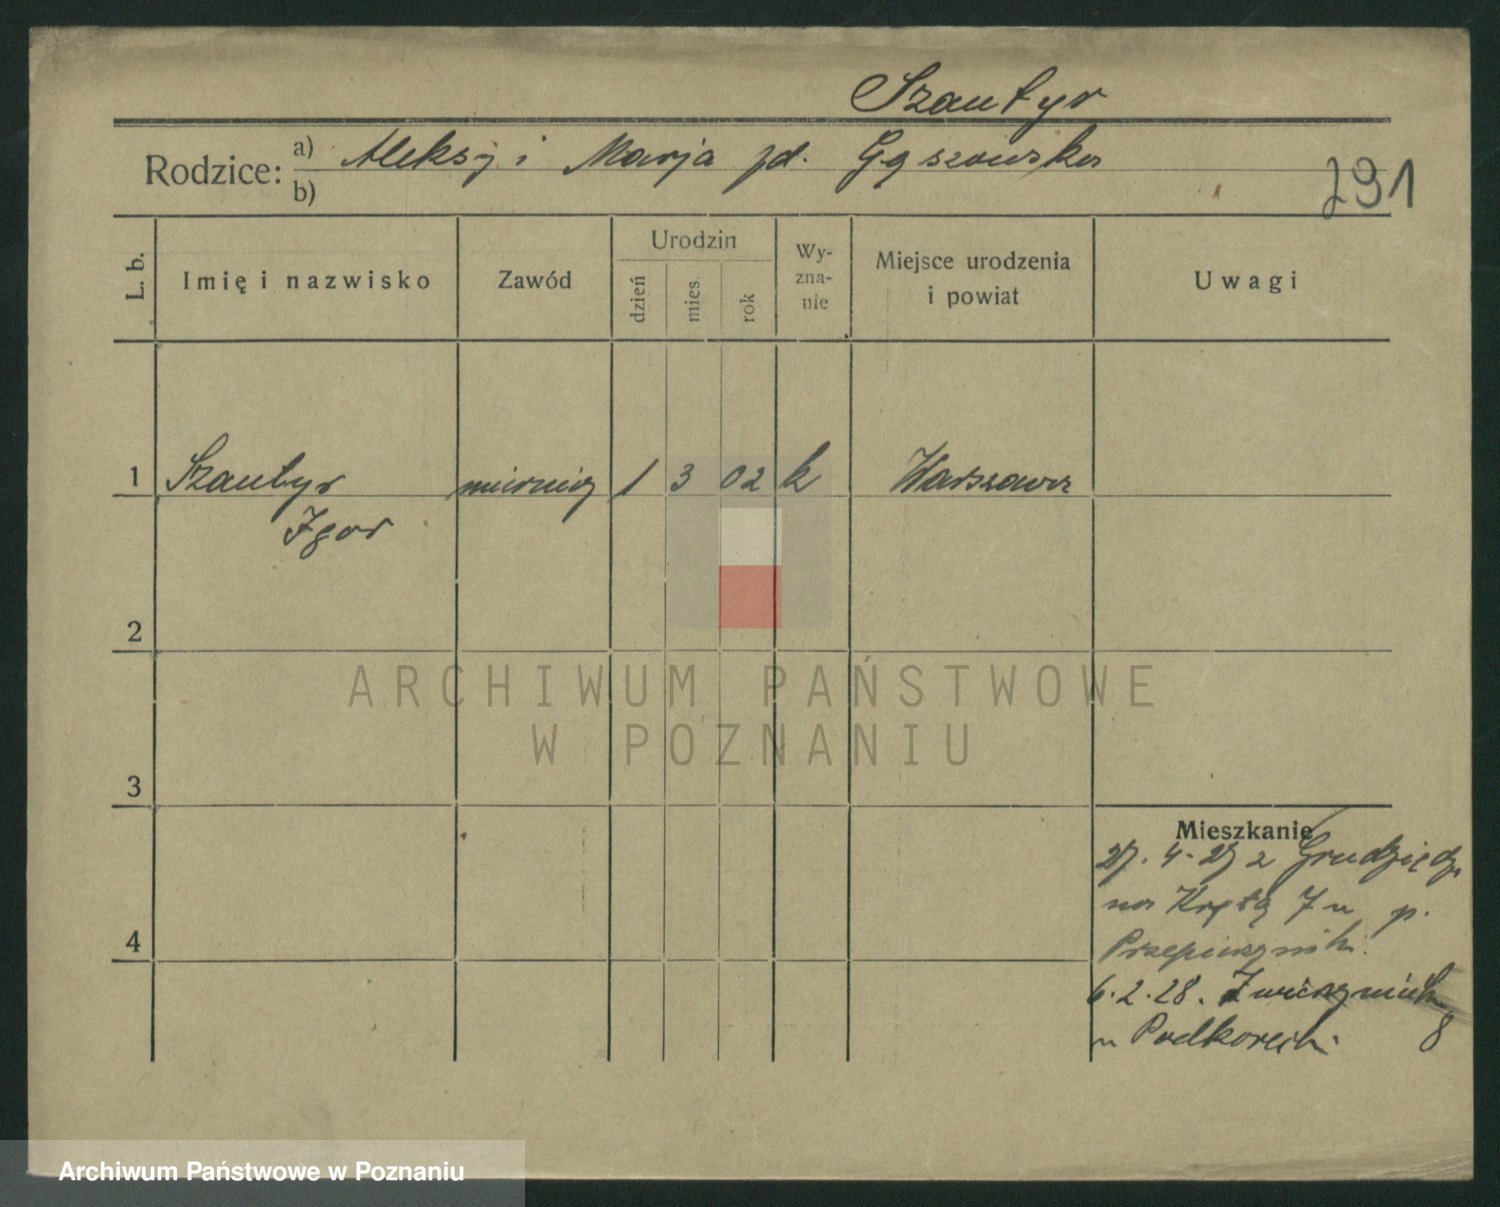 Szantyr
Rodzice: a) Aleksy i Marja pd. Gąszowska
b)
291
L. b.
Imię i nazwisko
Zawód
Urodzin
dzień
mies.
rok
Wy-
zna-
nie
Miejsce urodzenia
i powiat
Uwagi
1 Szantyr mierniczy 1 3 02 k Warszawa
Igor
2
3
4
ARCHIWUM PAŃSTWOWE
W POZNANIU
Mieszkanie
27. 4. 27 z Grudziądz
na Krętą 7 u p.
6.2.28. Zwierzyniecka 8
u
Archiwum Państwowe w Poznaniu